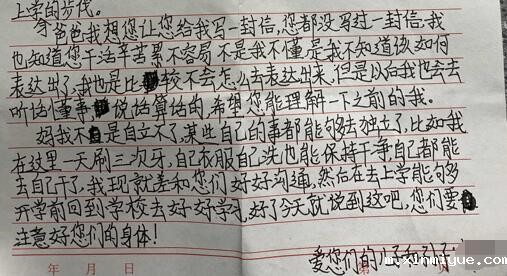 上学的步伐。
爸爸我想您让您给我写一封信,您都没写过一封信,我
也知道您干活辛苦累不容易不是我不懂,是我不知道该如何
表达出了,我也是比较不会怎么去表达出来,但是以后我也会去
听话懂事,说话算话的,希望您能理解一下之前的我。
妈我不是自立不了,某些自己的事都能够去独立了,比如我
在这里一天刷三次牙,自己衣服自己洗也能保持干净自己都能
去自己干了,我现就差和您们好好沟通,然后在去上学能够多
开学前回到学校去好好学习,好了今天就说到这吧,您们要
注意好您们的身体!
爱您们的
年 月 日 第 页
m.xinmiyue.com